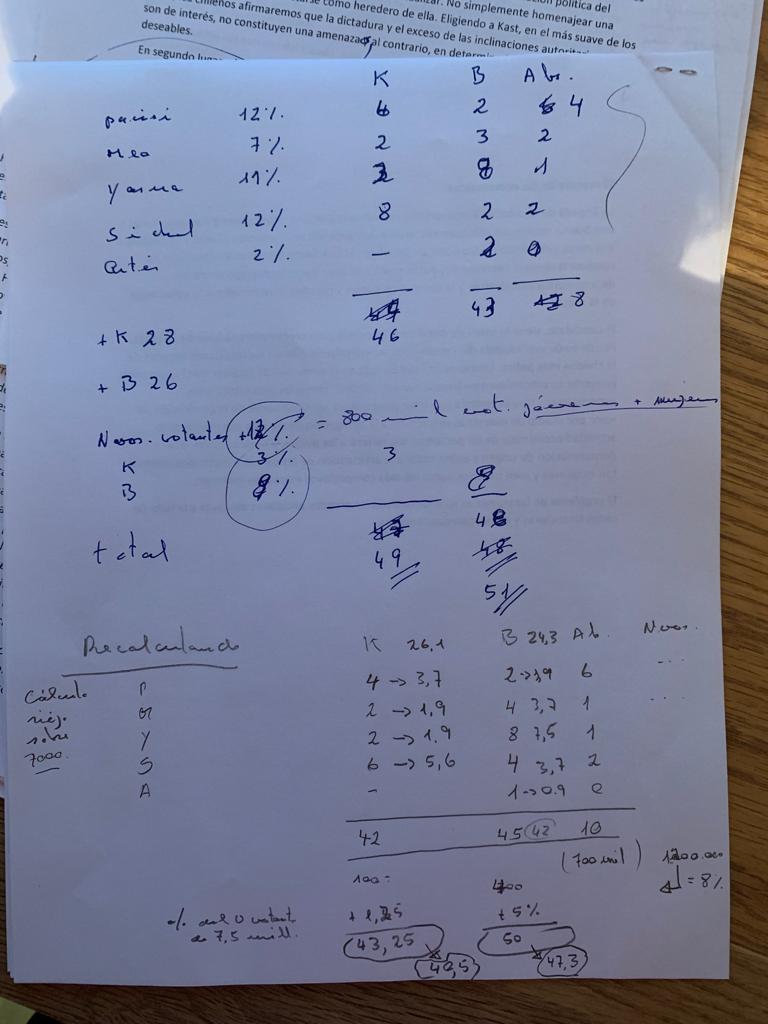 son de interés, no constituyen una amenaza, al contrario, en determin
chilenos afirmaremos que la dictadura y el exceso de las inclinaciones autorit
como heredero de ella. Eligiendo a Kast, en el más suave de los
deseables.
En segundo lugar
K B Abs.
parisi 12% 6 2 4
Meo 7% 2 3 2
Yasna 11% 2 8 1
Sichel 12% 8 2 2
Artés 2% — 2 0
43 8
+ K 28 46
+ B 26
Nvos. votantes = 800 mil vot. jóvenes + mujeres
K 3% 3
B 8% 8
48
total 49 48
51
Recalculando K 26,1 B 24,3 Ab. Nvos.
P 4 → 3,7 2 → 1,9 6 ...
Cálculo M 2 → 1,9 4 3,7 1 ...
sobre Y 2 → 1,9 8 7,5 1
7000. S 6 → 5,6 4 3,7 2
A - 1 → 0.9 0
42 45 42 10
(700 mil) 1200.000
100= 400 = 8%
+ 1,25 + 5%
de 7,5 mill. 43,25 50
40,5 47,3